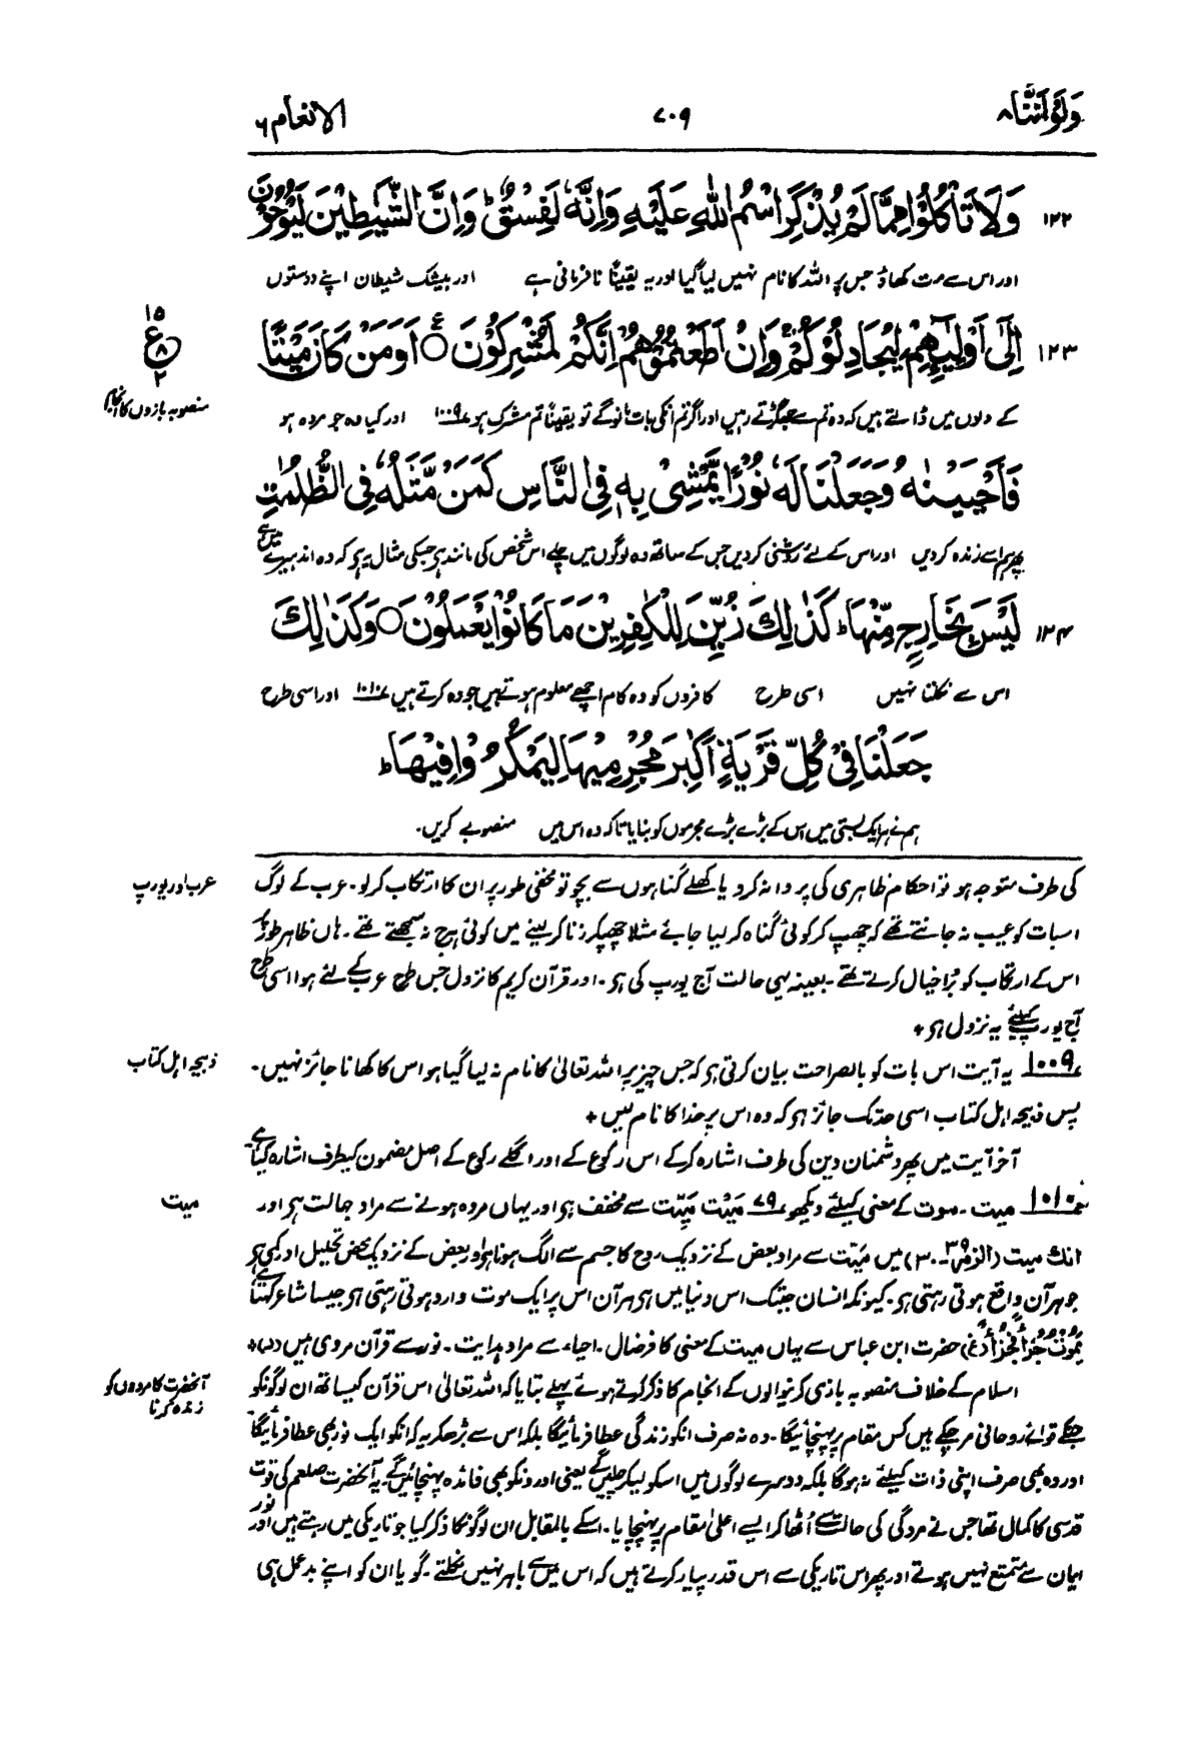 ولواننا۸ ۷۰۹ الانعام ۶
۱۲۲ وَلَا تَأْكُلُوْا مِمَّا لَمْ يُذْكَرِ اسْمُ اللّٰهِ عَلَيْهِ وَاِنَّهٗ لَفِسْقٌ ؕ وَاِنَّ الشَّيٰطِيْنَ لَيُوْحُوْنَ
اور اس سے مت کھاؤ جس پر اللہ کا نام نہیں لیا گیا اور یہ یقیناً نافرمانی ہے اور بیشک شیطان اپنے دوستوں
۱۲۳ اِلٰٓى اَوْلِيٰٓئِهِمْ لِيُجَادِلُوْكُمْ ۚ وَاِنْ اَطَعْتُمُوْهُمْ اِنَّكُمْ لَمُشْرِكُوْنَ ○ اَوَمَنْ كَانَ مَيْتًا
۱۵
ع
۸
۲
منصوبہ بازوں کا انجام
کے دلوں میں ڈالتے ہیں کہ وہ تم سے جھگڑتے رہیں اور اگر تم انکی بات مانوگے تو یقیناً تم مشرک ہو ۱۰۰۹ اور کیا وہ جو مردہ ہو
فَاَحْيَيْنٰهُ وَجَعَلْنَا لَهٗ نُوْرًا يَّمْشِىْ بِهٖ فِى النَّاسِ كَمَنْ مَّثَلُهٗ فِى الظُّلُمٰتِ
پھر ہم اسے زندہ کردیں اور اس کے لئے روشنی کردیں جس کے ساتھ وہ لوگوں میں چلے اس شخص کی مانند ہر جسکی مثال یہ ہو کہ وہ اندھیرے میں ہے
۱۲۴ لَيْسَ بِخَارِجٍ مِّنْهَا ؕ كَذٰلِكَ زُيِّنَ لِلْكٰفِرِيْنَ مَا كَانُوْا يَعْمَلُوْنَ ○ وَكَذٰلِكَ
اس سے نکلتا نہیں اسی طرح کافروں کو وہ کام اچھے معلوم ہوتے ہیں جو وہ کرتے ہیں ۱۰۱۰ اور اسی طرح
جَعَلْنَا فِىْ كُلِّ قَرْيَةٍ اَكٰبِرَ مُجْرِمِيْهَا لِيَمْكُرُوْا فِيْهَا ؕ
ہم نے ہر ایک بستی میں اس کے بڑے بڑے مجرموں کو بنایا تاکہ وہ اس میں منصوبے کریں۔
کی طرف متوجہ ہو تو احکام ظاہری کی پروا نہ کرو یا کھلے گناہوں سے بچو تو مخفی طور پر ان کا ارتکاب کرلو۔ عرب کے لوگ
عرب اور یورپ
اسبات کو عیب نہ جانتے تھے کہ چھپ کر کوئی گناہ کر لیا جائے مثلاً چھپکر زنا کر لینے میں کوئی ہرج نہ سمجھتے تھے۔ ہاں ظاہر طور پر
اس کے ارتکاب کو بُرا خیال کرتے تھے۔ بعینہ یہی حالت آج یورپ کی ہر۔ اور قرآن کریم کا نزول جس طرح عرب کے لئے ہوا اسی طرح
آج یورپ کیلئے یہ نزول ہر +
۱۰۰۹ یہ آیت اس بات کو بالصراحت بیان کرتی ہر کہ جس چیز پر اللہ تعالیٰ کا نام نہ لیا گیا ہو اس کا کھانا جائز نہیں۔
ذبیحہ اہل کتاب
پس ذبیحہ اہل کتاب اسی حد تک جائز ہر کہ وہ اس پر خدا کا نام لیں +
آخر آیت میں پھر دشمنان دین کی طرف اشارہ کرکے اس رکوع کے اور اگلے رکوع کے اصل مضمون کیطرف اشارہ کیا ہے
۱۰۱۰ میت۔ موت کے معنی کیلئے دیکھو ۷۹ مَیْت مَیِّت سے مخفف ہر اور یہاں مردہ ہونے سے مراد جہالت ہر اور
میت
انك ميت (الزمر ۳۹۔۳۰) میں مَیِّت سے مراد بعض کے نزدیک روح کا جسم سے الگ ہونا ہر اور بعض کے نزدیک محض تحلیل اور کمی ہر
جو ہر آن واقع ہوتی رہتی ہر۔ کیونکہ انسان جبتک اس دنیا میں ہر ہر آن اس پر ایک موت وارد ہوتی رہتی ہر جیسا شاعر کہتا ہے
(غ) حضرت ابن عباس سے یہاں میت کے معنی کافر ضال۔ احیاء سے مراد ہدایت۔ نور سے قرآن مروی ہیں +
اسلام کے خلاف منصوبہ بازی کرنیوالوں کے انجام کا ذکر کرتے ہوئے پہلے بتایا کہ اللہ تعالیٰ اس قرآن کیساتھ ان لوگونکو
آنحضرت کا مردوں کو زندہ کرنا
جنکے قوائے روحانی مر چکے ہیں کس مقام پر پہنچائیگا۔ وہ نہ صرف انکو زندگی عطا فرمائیگا بلکہ اس سے بڑھکر یہ کہ انکو ایک نور بھی عطا فرمائیگا
اور وہ بھی صرف اپنی ذات کیلئے نہ ہوگا بلکہ دوسرے لوگوں میں اسکو لیکر چلیں گے یعنی اورونکو بھی فائدہ پہنچائیں گے۔ یہ آنحضرت صلعم کی قوت
قدسی کا کمال تھا جس نے مردگی کی حالت سے اُٹھا کر ایسے اعلیٰ مقام پر پہنچایا۔ اسکے بالمقابل ان لوگونکا ذکر کیا جو تاریکی میں رہتے ہیں اور نور
ایمان سے متمتع نہیں ہوتے اور پھر اس تاریکی سے اس قدر پیار کرتے ہیں کہ اس میں سے باہر نہیں نکلتے۔ گویا ان کو اپنے بد عمل ہی